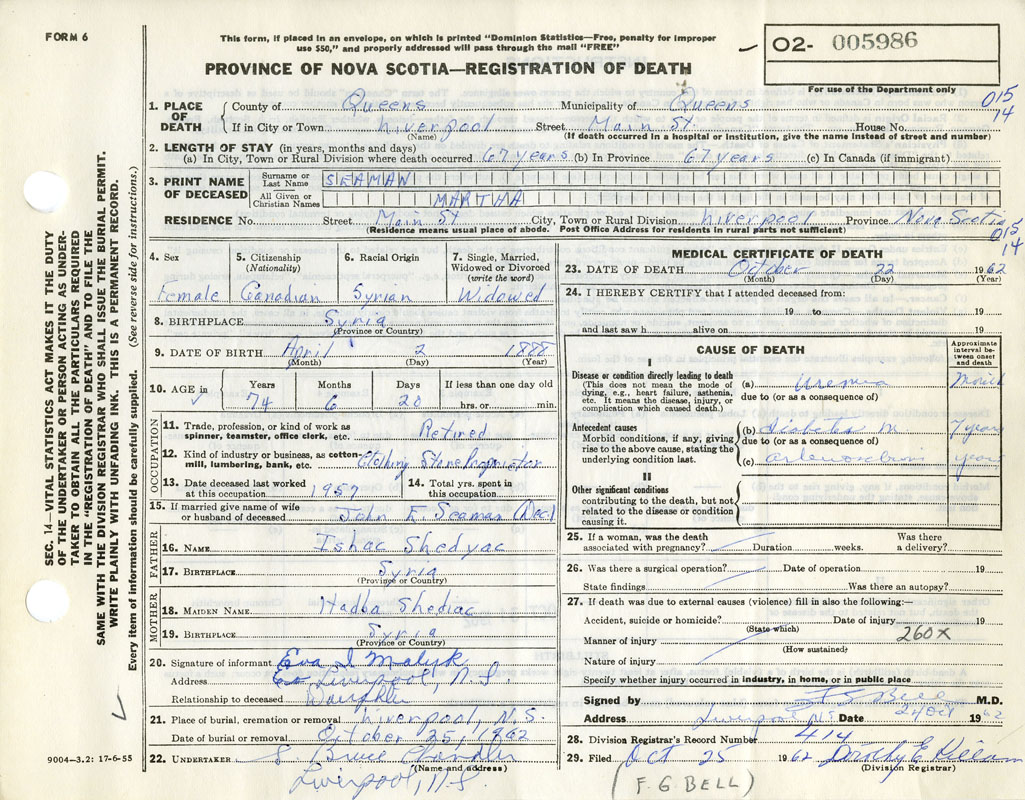 FORM 6
This form, if placed in an envelope, on which is printed "Dominion Statistics—Free, penalty for improper
use $50," and properly addressed will pass through the mail "FREE"
O2- 005986
For use of the Department only
PROVINCE OF NOVA SCOTIA—REGISTRATION OF DEATH
015
14
1. PLACE OF DEATH
County of Queens Municipality of Queens
If in City or Town Liverpool Street Main St. House No.
(Name) (If death occurred in a hospital or institution, give the name instead of street and number)
2. LENGTH OF STAY (in years, months and days)
(a) In City, Town or Rural Division where death occurred 67 years (b) In Province 67 years (c) In Canada (if immigrant)
3. PRINT NAME OF DECEASED
Surname or Last Name SEAMAN
All Given or Christian Names MARTHA
RESIDENCE No. Street Main St City, Town or Rural Division Liverpool Province Nova Scotia
(Residence means usual place of abode. Post Office Address for residents in rural parts not sufficient)
015
14
4. Sex 5. Citizenship (Nationality) 6. Racial Origin 7. Single, Married, Widowed or Divorced (write the word)
Female Canadian Syrian Widowed
8. BIRTHPLACE Syria
(Province or Country)
9. DATE OF BIRTH April 2 1888
(Month) (Day) (Year)
10. AGE in Years Months Days If less than one day old
74 6 20 hrs. or min.
OCCUPATION
11. Trade, profession, or kind of work as
spinner, teamster, office clerk, etc. Retired
12. Kind of industry or business, as cotton-
mill, lumbering, bank, etc. Clothing Store Proprietor
13. Date deceased last worked at this occupation 1957 14. Total yrs. spent in this occupation
15. If married give name of wife
or husband of deceased John E. Seaman (Dec)
FATHER
16. NAME Ishac Shedyac
17. BIRTHPLACE Syria
(Province or Country)
MOTHER
18. MAIDEN NAME Hadba Shediac
19. BIRTHPLACE Syria
(Province or Country)
20. Signature of informant Eva I Malyk
Address Liverpool, N.S.
Relationship to deceased Daughter
21. Place of burial, cremation or removal Liverpool, N.S.
Date of burial or removal October 25, 1962
22. UNDERTAKER Bruce Chandler
(Name and address)
Liverpool, N.S
MEDICAL CERTIFICATE OF DEATH
23. DATE OF DEATH October 22 1962
(Month) (Day) (Year)
24. I HEREBY CERTIFY that I attended deceased from:
19 to 19
and last saw h alive on 19
CAUSE OF DEATH
Approximate interval between onset and death
I
Disease or condition directly leading to death
(This does not mean the mode of
dying, e.g., heart failure, asthenia,
etc. It means the disease, injury, or
complication which caused death.)
(a) Uremia
due to (or as a consequence of)
Antecedent causes
Morbid conditions, if any, giving
rise to the above cause, stating the
underlying condition last.
(b) diabetes m 7 years
due to (or as a consequence of)
(c) years
II
Other significant conditions
contributing to the death, but not
related to the disease or condition
causing it.
25. If a woman, was the death
associated with pregnancy? Duration weeks. Was there a delivery?
26. Was there a surgical operation? Date of operation 19
State findings Was there an autopsy?
27. If death was due to external causes (violence) fill in also the following:—
Accident, suicide or homicide? Date of injury 19
(State which)
260X
Manner of injury
(How sustained)
Nature of injury
Specify whether injury occurred in industry, in home, or in public place
Signed by F G Bell M.D.
Address Liverpool NS Date 24 Oct 1962
28. Division Registrar's Record Number 414
29. Filed Oct 25 1962 Dorothy E
(Division Registrar)
(F. G. BELL)
SEC. 14—VITAL STATISTICS ACT MAKES IT THE DUTY
OF THE UNDERTAKER OR PERSON ACTING AS UNDER-
TAKER TO OBTAIN ALL THE PARTICULARS REQUIRED
IN THE "REGISTRATION OF DEATH" AND TO FILE THE
SAME WITH THE DIVISION REGISTRAR WHO SHALL ISSUE THE BURIAL PERMIT.
WRITE PLAINLY WITH UNFADING INK. THIS IS A PERMANENT RECORD.
Every item of information should be carefully supplied. (See reverse side for instructions.)
9004—3.2: 17-6-55